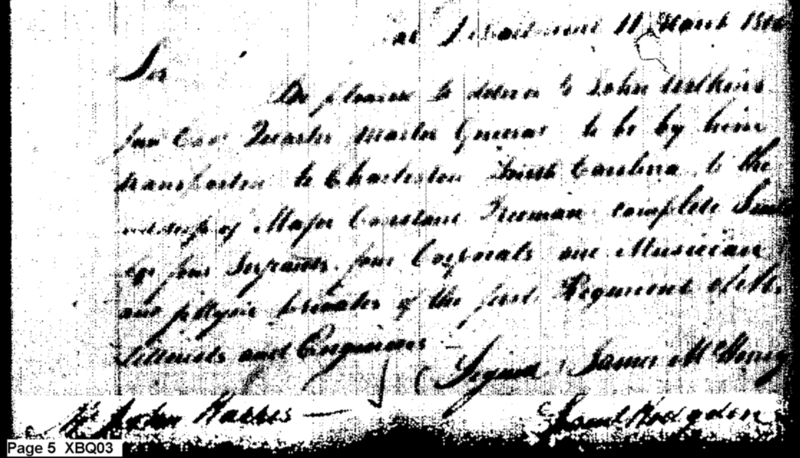 War Department 11 March 1800
Sir
Be pleased to deliver to John Wilkins
Junr Esqr Quarter Master General to be by him
transported to Charleston South Carolina to the
address of Major Constant Freeman complete
for four Serjeants, four Corporals one Musician
and fifty six privates of the first Regiment of
Artillerists and Engineers
(Signed) James McHenry
Mr John Harris
Saml Hodgdon
Page 5 XBQ03